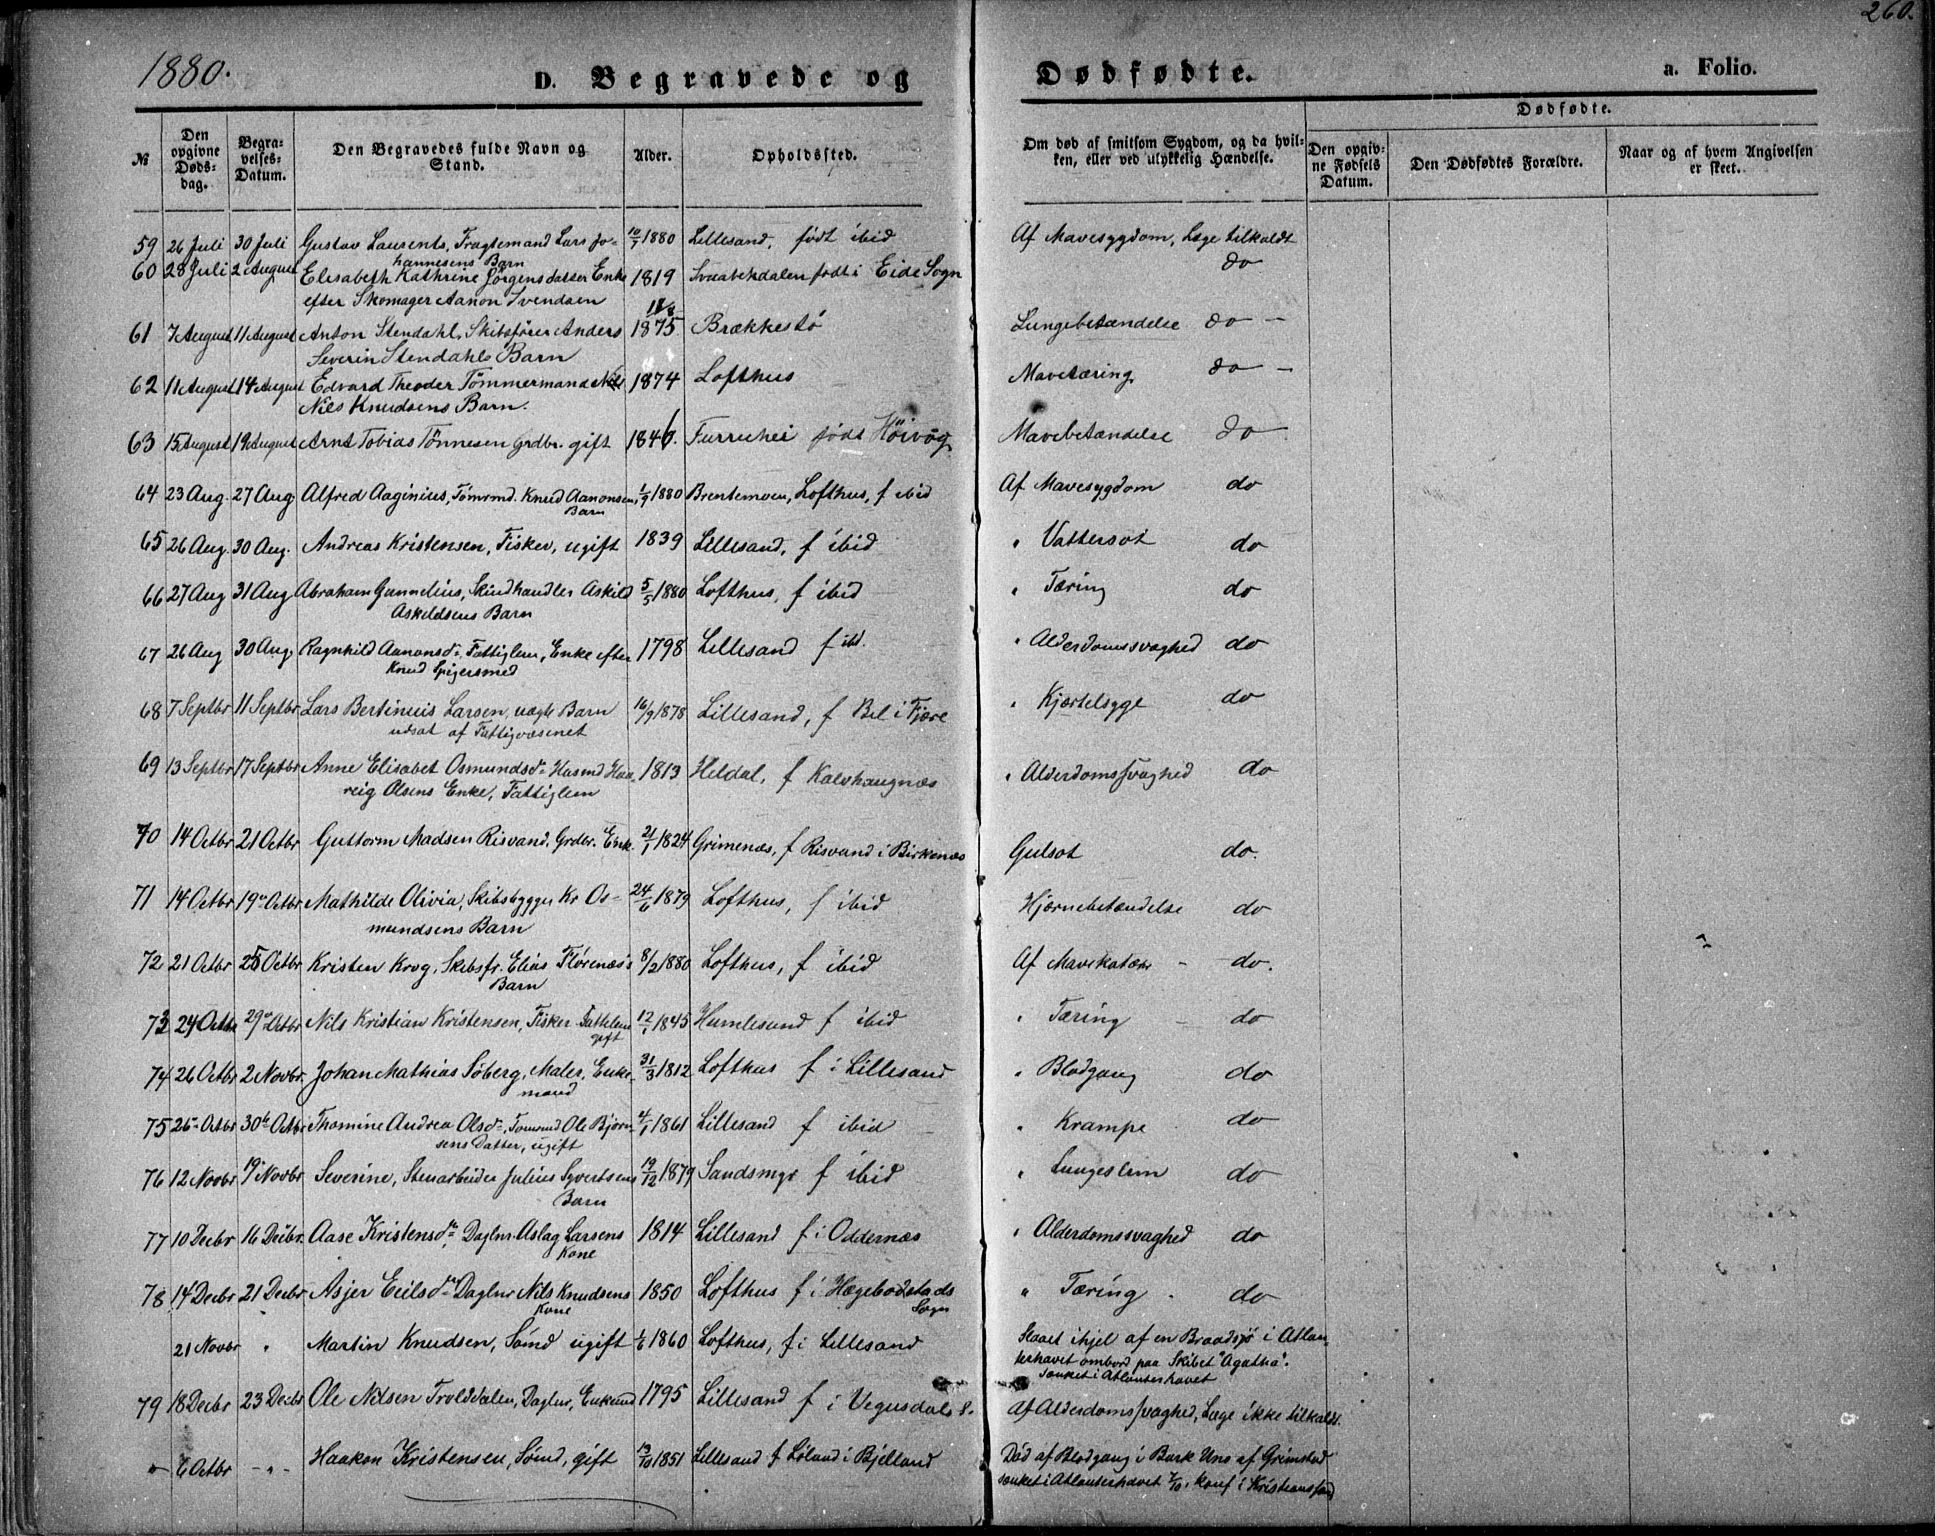 260.
1880.
D. Begravede og Dødfødte. a. Folio.
№
Den opgivne Dødsdag.
Begravelses-Datum.
Den Begravedes fulde Navn og Stand.
Alder.
Opholdssted.
Om død af smitsom Sygdom, og da hvilken, eller ved ulykkelig Hændelse.
Dødfødte.
Den opgivne Fødsels Datum.
Den Dødfødtes Forældre.
Naar og af hvem Angivelsen er skeet.
59 26 Juli 30 Juli Gustav Laurents, Fragtemand Lars Jo- 10/7 1880 Lillesand, født ibid Af Mavesygdom, Læge tilkaldt
hannesens Barn
60 28 Juli 2 August Elisabeth Kathrine Jörgensdatter Enke 1819 Svaabekdalen født i Eide Sogn do
efter Skomager Aanon Svendsen
61 7 August 11 August Anton Stendahl, Skibsfører Anders 1875 Brækkestö Lungebetændelse do -
Severin Stendahls Barn
62 11 August 14 August Edvard Theoder Tömmermand 1874 Lofthus Mavetæring do -
Nils Knudsens Barn.
63 15 August 19 August Arnt Tobias Tönnesen Grdbr. gift 1846. Furuhei født Höivåg Mavebetændelse do
64 23 Aug. 27 Aug Alfred Aaginius, Tömrmd. Knud Aanonsen, 1/9 1880 Brentemoen, Lofthus, f ibid Af Mavesygdom do
Barn
65 26 Aug. 30 Aug. Andreas Kristensen, Fisker, ugift 1839 Lillesand, f ibid " Vattersot do
66 27 Aug 31 Aug Abraham Gunnelius, Skindhandler Askild 5/5 1880 Lofthus, f ibid " Tæring do
Askildsens Barn
67 26 Aug 30 Aug. Ragnhild Aanonsdr. Fattiglem, Enke efter 1798 Lillesand f ibd. " Alderdomssvaghed do
Knud Spigersmed
68 7 Septbr 11 Septbr Lars Bertinius Larsen, uægte Barn 16/9 1878 Lillesand, f Bel i Fjære " Kjertelsyge do
udsat af Fattigvæsenet
69 13 Septbr 17 Septbr Anne Elisabet Osmundsdr. Husmd Haa- 1813 Heldal, f Kalvhaugnæs " Alderdomssvaghed do
reig Olsens Enke, Fattiglem
70 14 Octbr 21 Octbr Guttorm Madsen Risvand, Grdbr. Enk. 21/1 1824 Grimenæs, f Risvand i Birkenæs Gulsot do.
71 14 Octbr 19 Octbr Mathilde Olivia, Skibsbygger Kr Os- 24/6 1879 Lofthus, f ibid Hjernebetændelse do
mundsens Barn
72 21 Octbr 25 Octbr Kristen Krog, Skibsfr. Elias Flørenæs's 8/2 1880 Lofthus, f ibid Af Mavekatar - do.
Barn
73 24 Octbr 29 Octbr Nils Kristian Kristensen, Fisker Fattilem 12/1 1845 Humlesund f ibid " Tæring - do
gift
74 26 Octbr 2 Novbr. Johan Mathias Söberg, Maler, Enke- 31/3 1812 Lofthus f i Lillesand " Blodgang do
mand
75 25 Octbr 30 Octbr Thomine Andrea Olsdr., Tømrmd Ole Bjørn- 4/1 1861 Lillesand f ibid " Krampe do
sens Datter, ugift
76 12 Novbr 19 Novbr Severine, Stenarbeider Julius Syvertsens 19/12 1879 Sandsmyr f ibid " Lungeslim do
Barn
77 10 Decbr 16 Decbr. Aase Kristensdr. Daglnr. Aslag Larsens 1814 Lillesand f i Oddernæs " Alderdomssvaghed do
Kone
78 14 Decbr 21 Decbr Asjer Eilsdr. Daglnr Nils Knudsens 1850 Lofthus f i Hægebodstads " Tæring - do
Kone Sogn
21 Novbr " Martin Knudsen, Sömd ugift 1/6 1860 Lofthus, f i Lillesand Slaaet ihjel af en Braadsjö i Atlan-
terhavet ombord paa Skibet "Agatha".
sænket i Atlanterhavet
79 18 Decbr 23 Decbr Ole Nilsen Trolddalen, Daglnr, Enkemd 1795 Lillesand f i Vegusdals S. Af Alderdomssvaghed, Læge ikke tilkaldt.
" 6 Octbr - " - Haakon Kristensen, Sömd, gift 13/10 1851 Lillesand f Löland i Bjelland Död af Blodgang i Bark Uno af Grimstad
sænket i Atlanterhavet 7/10, konf i Kristianssand